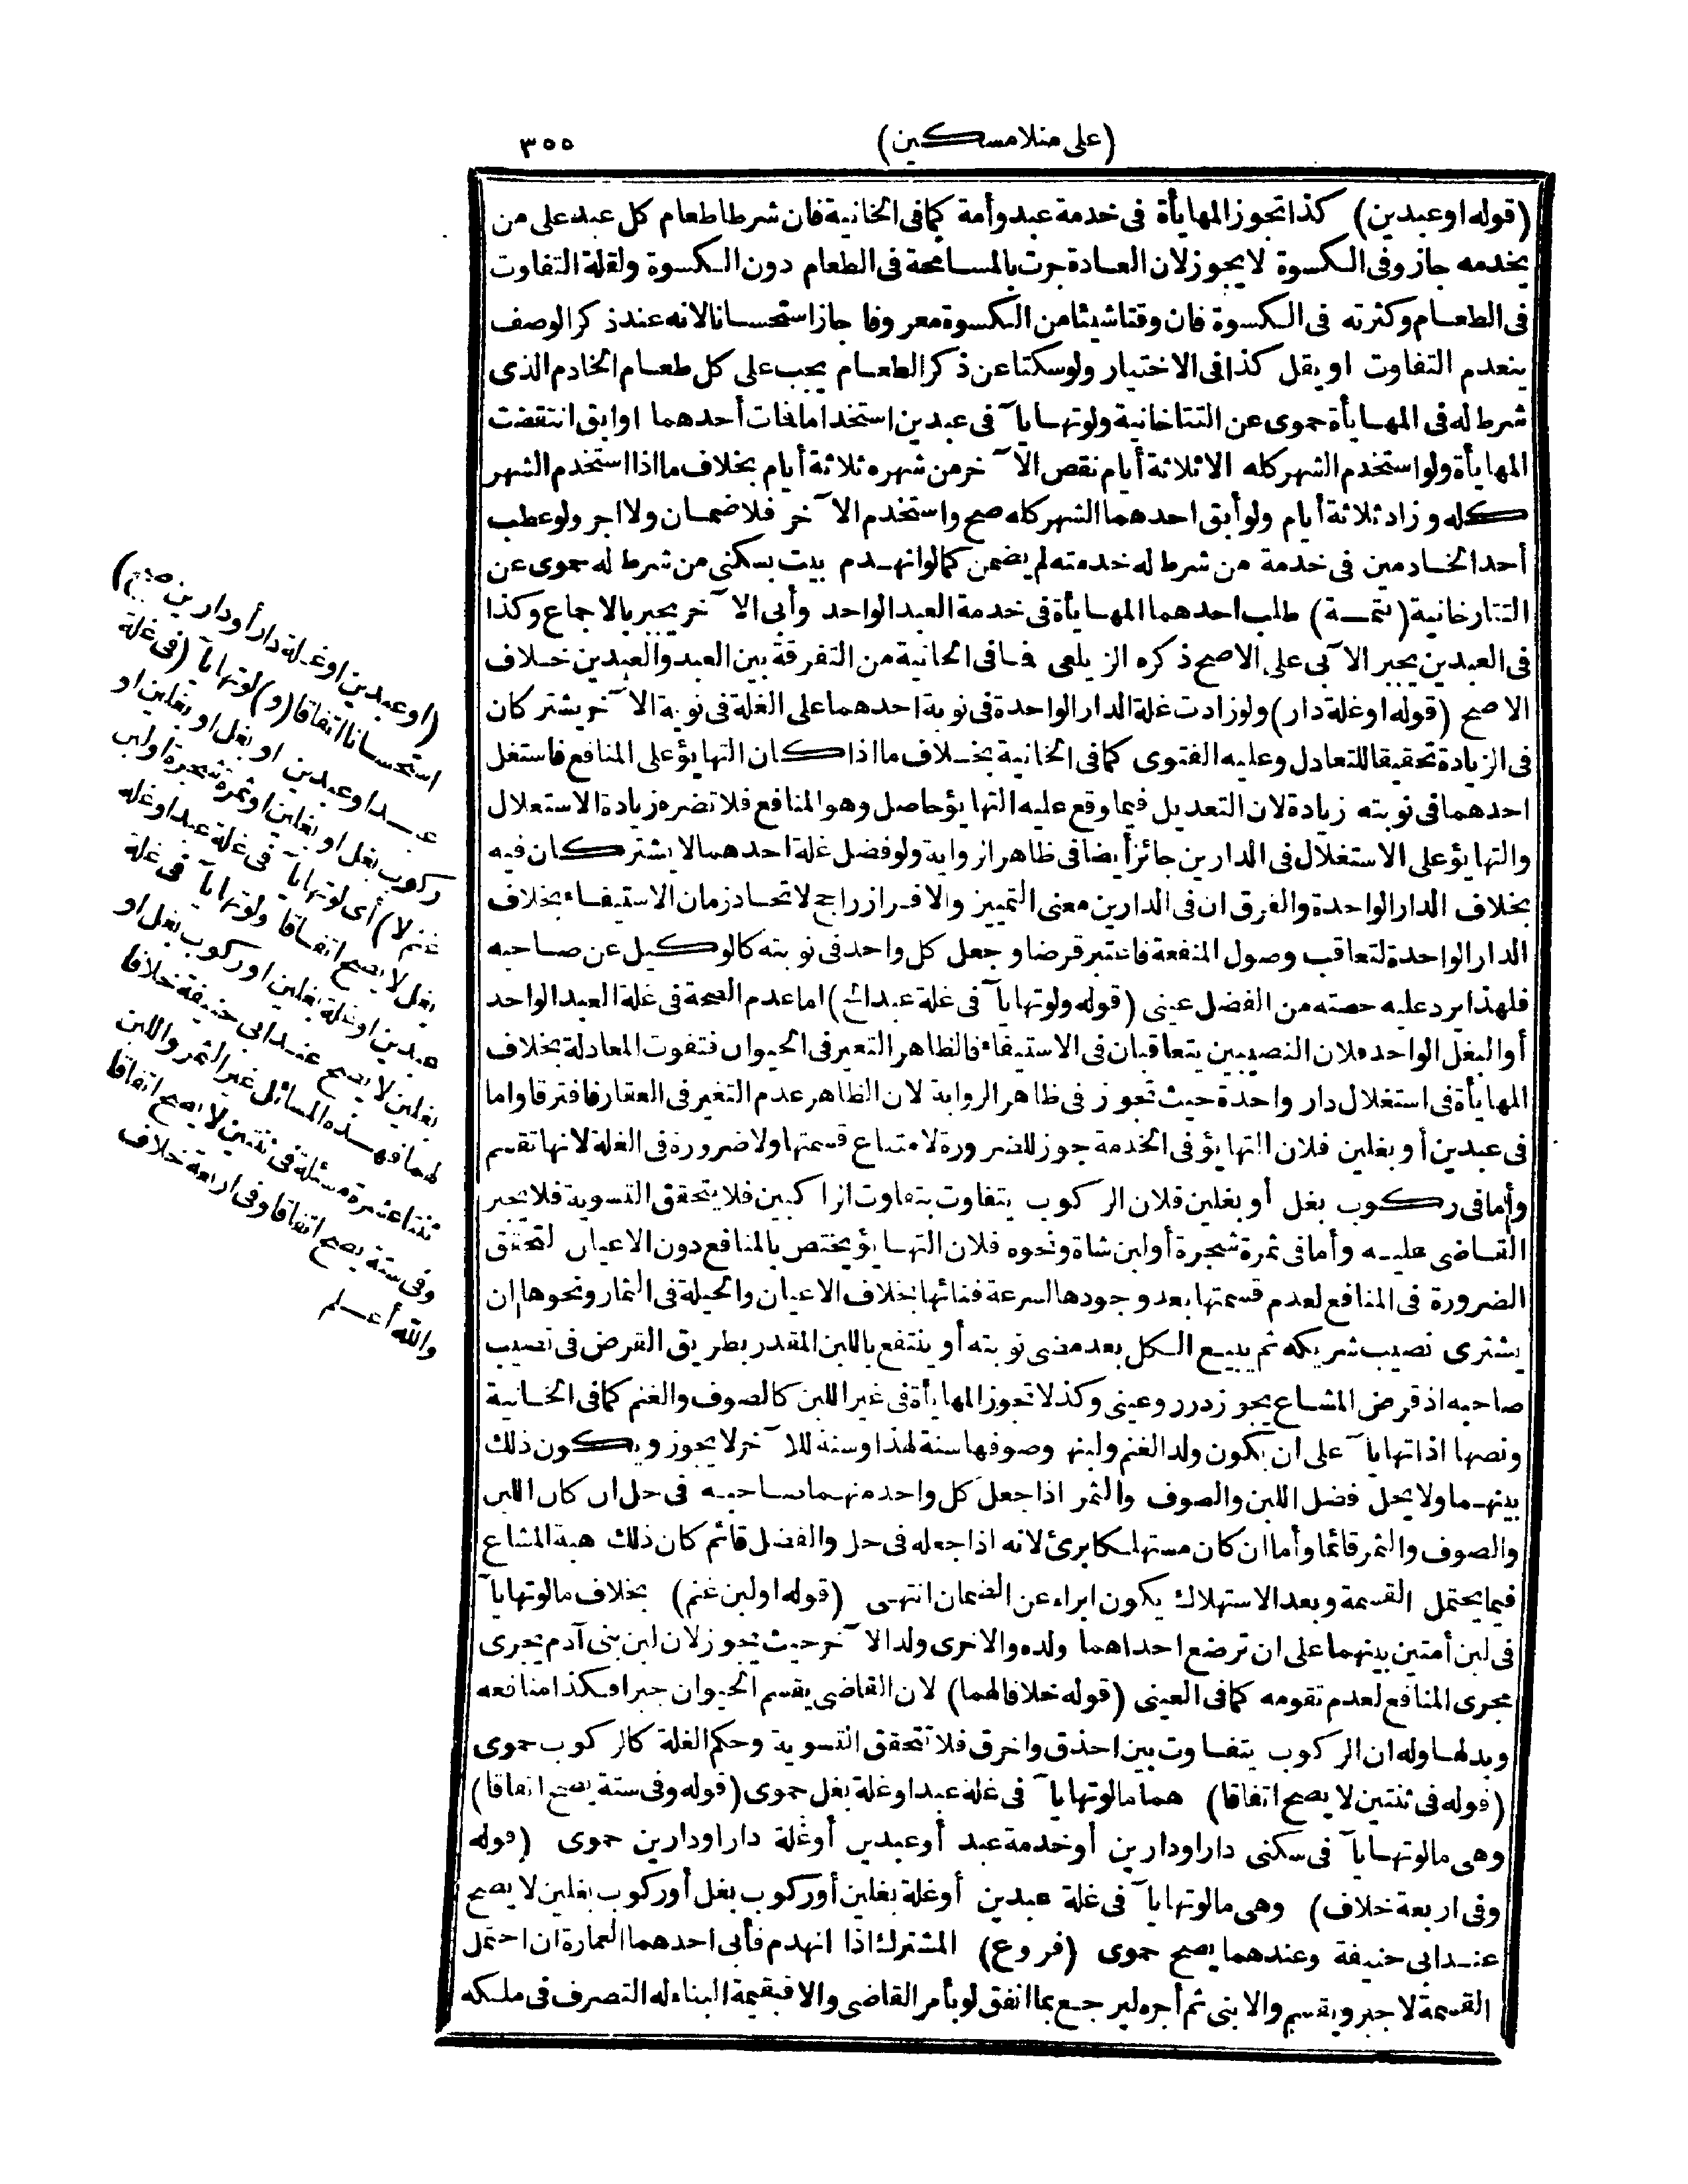 (على منلا مسكين) ٣٥٥
(قوله او عبدين) كذا تجوز المهايأة فى خدمة عبد وأمة كما فى الخانية فان شرطا طعام كل عبد على من
يخدمه جاز وفى الكسوة لا يجوز لان العادة جرت بالمسامحة فى الطعام دون الكسوة ولقلة التفاوت
فى الطعام وكثرته فى الكسوة فان وقتا شيئا من الكسوة معروفا جاز استحسانا لانه عند ذكر الوصف
ينعدم التفاوت او يقل كذا فى الاختيار ولو سكتا عن ذكر الطعام يجب على كل طعام الخادم الذى
شرط له فى المهايأة حموى عن التتاخانية ولو تهايآ فى عبدين استخداما فات أحدهما او ابق انتقضت
المهايأة ولو استخدم الشهر كله الا ثلاثة أيام نقص الآخر من شهره ثلاثة أيام بخلاف ما اذا استخدم الشهر
كله وزاد ثلاثة أيام ولو أبق احدهما الشهر كله صح واستخدم الآخر فلا ضمان ولا اجر ولو عطب
أحد الخادمين فى خدمة من شرط له خدمته لم يضمن كما لو انهدم بيت بسكنى من شرط له حموى عن
التتارخانية (تتمة) طلب احدهما المهايأة فى خدمة العبد الواحد وأبى الآخر يجبر بالاجماع وكذا
فى العبدين يجبر الآبى على الاصح ذكره الزيلعى فما فى الخانية من التفرقة بين العبد والعبدين خلاف
الاصح (قوله او غلة دار) ولو زادت غلة الدار الواحدة فى نوبة احدهما على الغلة فى نوبة الآخر يشتركان
فى الزيادة تحقيقا للتعادل وعليه الفتوى كما فى الخانية بخلاف ما اذا كان التهايؤ على المنافع فاستغل
احدهما فى نوبته زيادة لان التعديل فيما وقع عليه التهايؤ حاصل وهو المنافع فلا تضره زيادة الاستعلال
والتهايؤ على الاستغلال فى الدارين جائز أيضا فى ظاهر الرواية ولو فضل غلة احدهما لا يشتركان فيه
بخلاف الدار الواحدة والفرق ان فى الدارين معنى التمييز والافراز راجح لاتحاد زمان الاستيفاء بخلاف
الدار الواحدة لتعاقب وصول المنفعة فاعتبر قرضا وجعل كل واحد فى نوبته كالوكيل عن صاحبه
فلهذا يرد عليه حصته من الفضل عينى (قوله ولو تهايآ فى غلة عبد الخ) اما عدم الصحة فى غلة العبد الواحد
أو البغل الواحد فلان النصيبين يتعاقبان فى الاستيفاء فالظاهر التغير فى الحيوان فتفوت المعادلة بخلاف
المهايأة فى استغلال دار واحدة حيث تجوز فى ظاهر الرواية لان الظاهر عدم التغير فى العقار فافترقا واما
فى عبدين أو بغلين فلان التهايؤ فى الخدمة جوز للضرورة لامتناع قسمتها ولا ضرورة فى الغلة لانها تقسم
وأما فى ركوب بغل أو بغلين فلان الركوب يتفاوت بتفاوت الراكبين فلا يتحقق التسوية فلا يجبر
القاضى عليه وأما فى ثمرة شجرة أو لبن شاة ونحوه فلان التهايؤ يختص بالمنافع دون الاعيان لتحقق
الضرورة فى المنافع لعدم قسمتها بعد وجودها لسرعة فنائها بخلاف الاعيان والحيلة فى الثمار ونحوها ان
يشترى نصيب شريكه ثم يبيع الكل بعد مضى نوبته أو ينتفع باللبن المقدر بطريق القرض فى نصيب
صاحبه اذ قرض المشاع يجوز درر وعينى وكذا لا تجوز المهايأة فى غير اللبن كالصوف والغنم كما فى الخانية
ونصها اذا تهايآ على ان يكون ولد الغنم ولبنها وصوفها سنة لهذا وسنة للآخر لا يجوز ويكون ذلك
بينهما ولا يحل فضل اللبن والصوف والثمر اذا جعل كل واحد منهما صاحبه فى حل ان كان اللبن
والصوف والثمر قائما وأما ان كان مستهلكا برئ لانه اذا جعله فى حل والفضل قائم كان ذلك هبة المشاع
فيما يحتمل القسمة وبعد الاستهلاك يكون ابراء عن الضمان انتهى (قوله او لبن غنم) بخلاف ما لو تهايآ
فى لبن أمتين بينهما على ان ترضع احداهما ولده والاخرى ولد الآخر حيث يجوز لان لبن بنى آدم يجرى
مجرى المنافع لعدم تقومه كما فى العينى (قوله خلافا لهما) لان القاضى يقسم الحيوان جبرا فكذا منافعه
وبدلها وله ان الركوب يتفاوت بين احذق واخرق فلا تتحقق التسوية وحكم الغلة كالركوب حموى
(قوله فى ثنتين لا يصح اتفاقا) هما ما لو تهايآ فى غلة عبد او غلة بغل حموى (قوله وفى ستة يصح اتفاقا)
وهى ما لو تهايآ فى سكنى دار او دارين أو خدمة عبد أو عبدين أو غلة دار او دارين حموى (قوله
وفى اربعة خلاف) وهى ما لو تهايآ فى غلة عبدين أو غلة بغلين أو ركوب بغل أو ركوب بغلين لا يصح
عند ابى حنيفة وعندهما يصح حموى (فروع) المشترك اذا انهدم فأبى احدهما العمارة ان احتمل
القسمة لا جبر ويقسم والا بنى ثم أجره ليرجع بما انفق لو بأمر القاضى والا فبقيمة البناء له التصرف فى ملكه
(او عبدين او غلة دار أو دارين صح)
استحسانا اتفاقا (و) لو تهايآ (فى غلة
عبد او عبدين او بغل او بغلين او
ركوب بغل او بغلين او ثمرة شجرة او لبن
غنم لا) أى لو تهايآ فى غلة عبد او غلة
بغل لا يصح اتفاقا ولو تهايآ فى غلة
عبدين او غلة بغلين او ركوب بغل او
بغلين لا يصح عند ابى حنيفة خلافا
لهما فهذه المسائل غير الثمر واللبن
ثنتا عشرة مسئلة فى ثنتين لا يصح اتفاقا
وفى ستة يصح اتفاقا وفى اربعة خلاف
والله أعلم